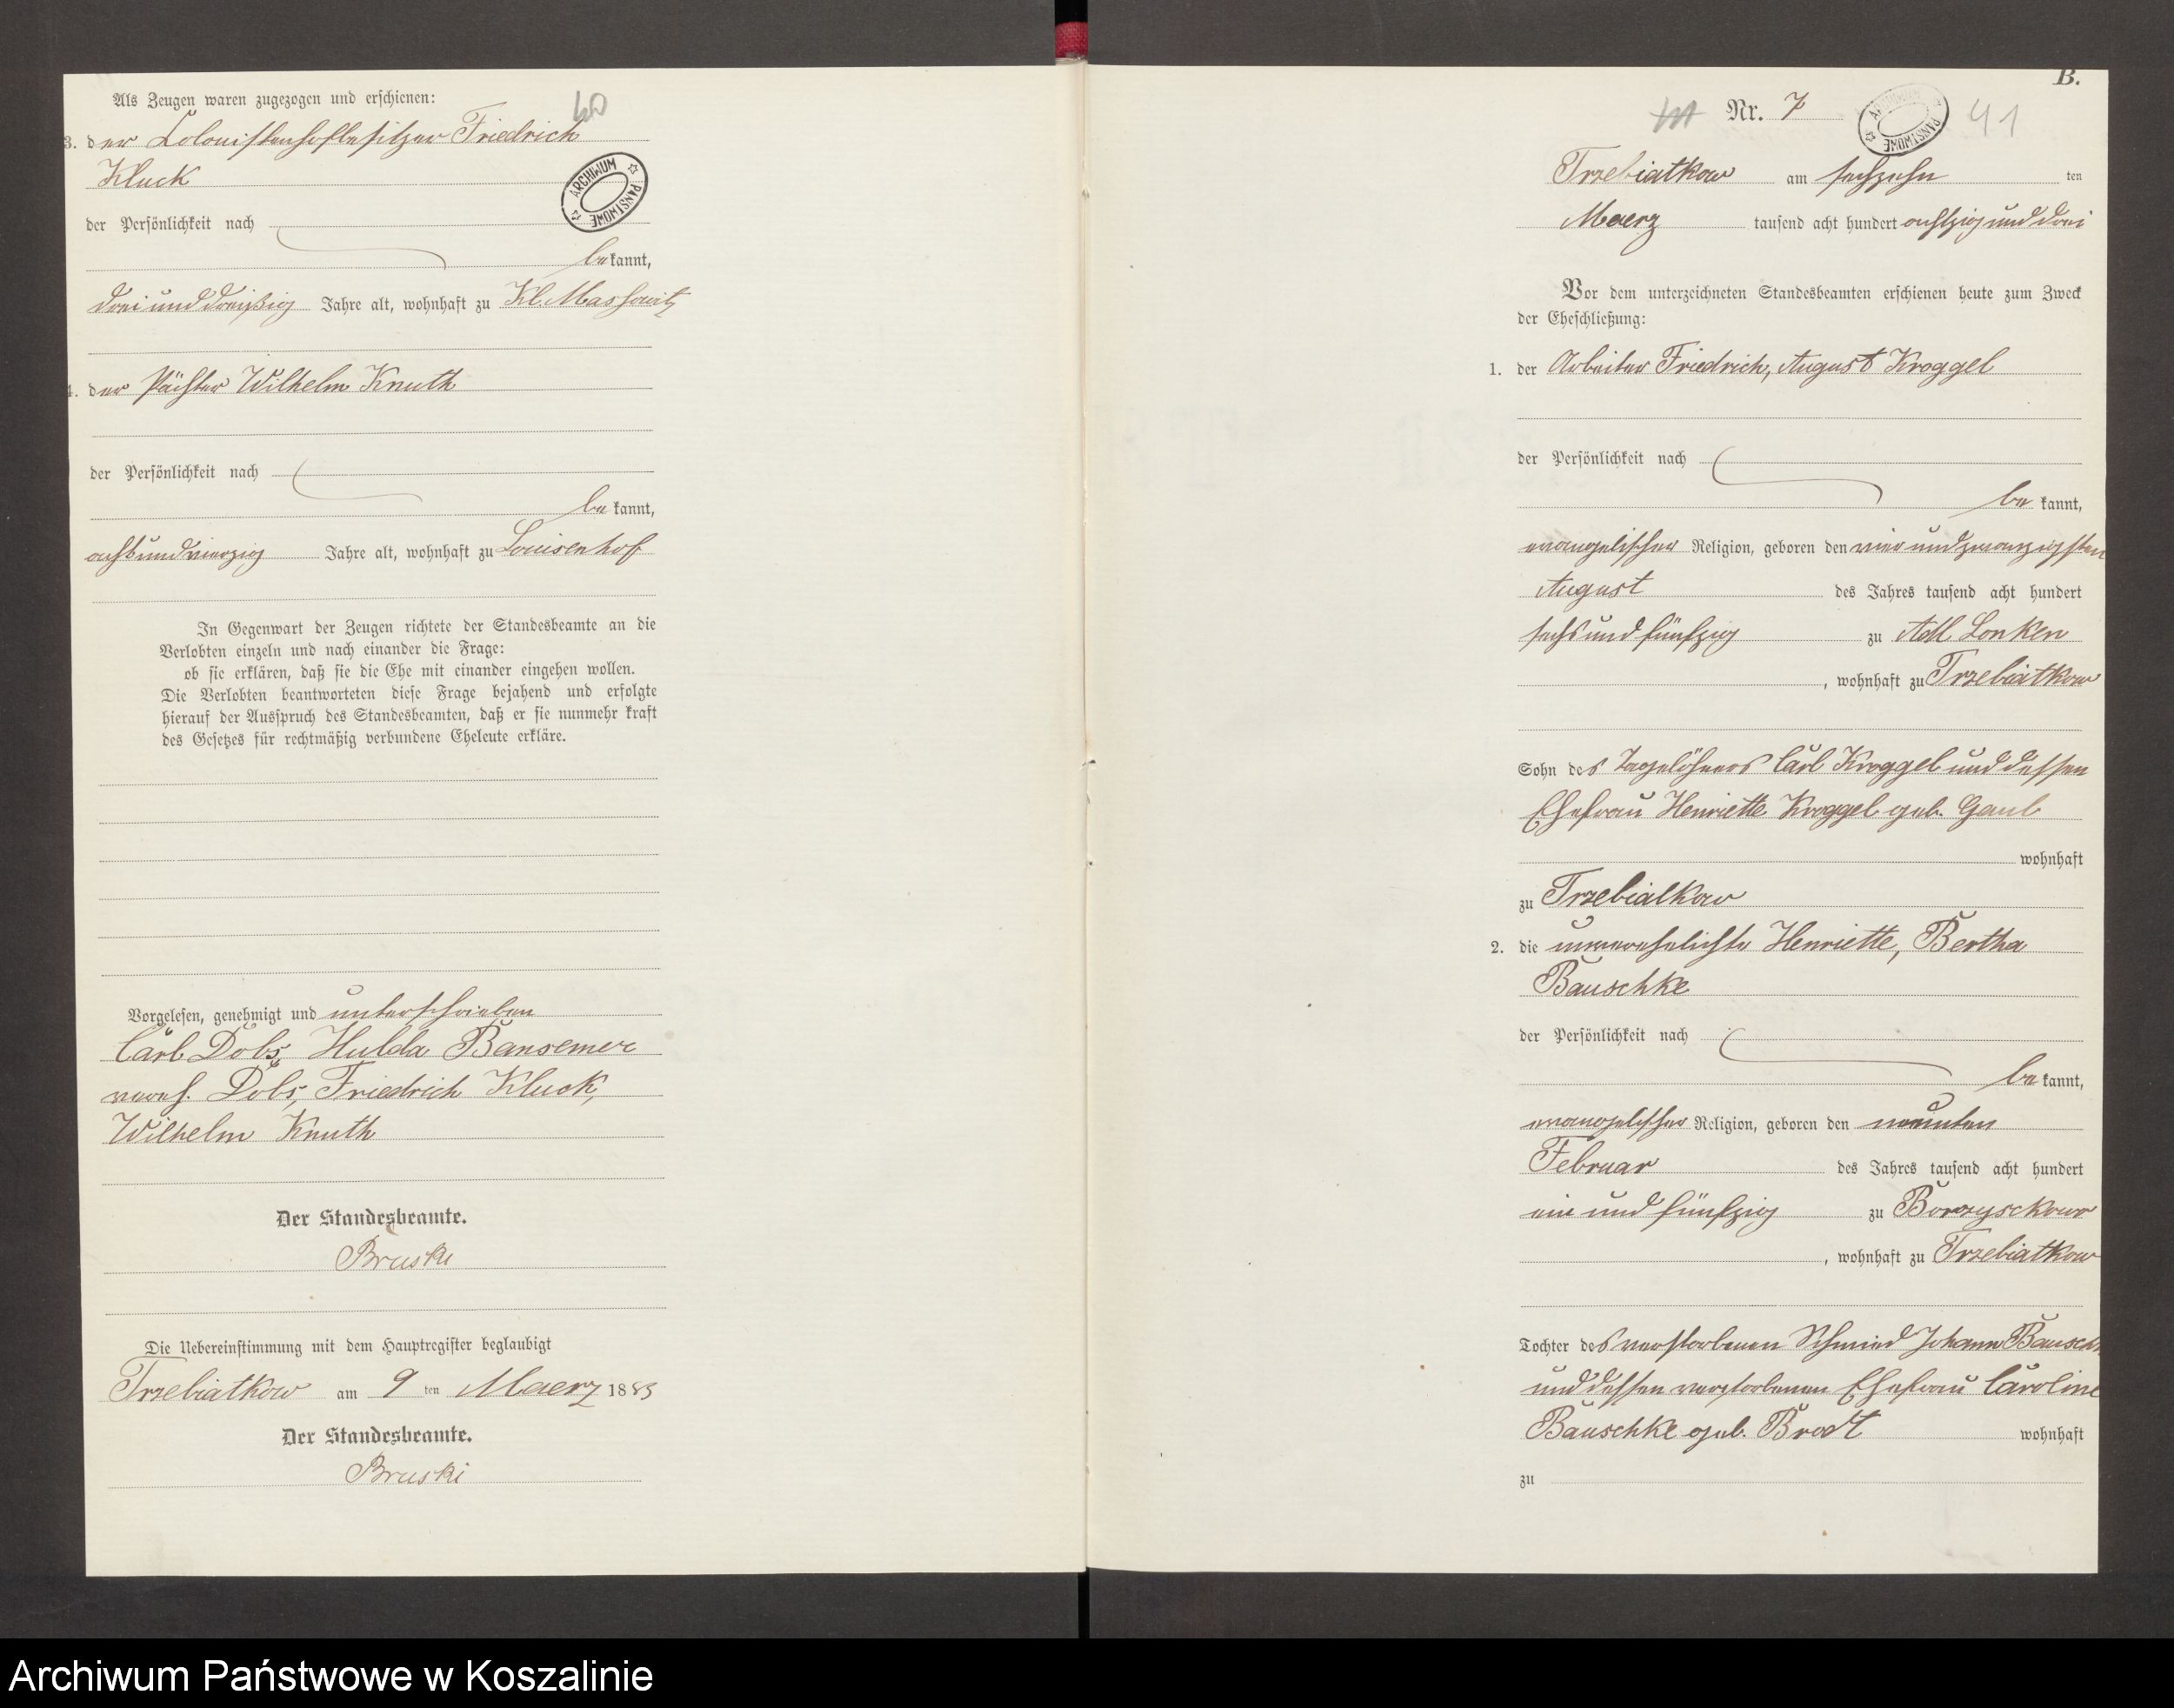 Als Zeugen waren zugezogen und erschienen:
40
3. der Colonistenhofbesitzer Friedrich
Kluck
ARCHIWUM PAŃSTWOWE
der Persönlichkeit nach
bekannt,
drei und dreißig Jahre alt, wohnhaft zu Kl. Massowitz
4. der Pächter Wilhelm Knuth
der Persönlichkeit nach
bekannt,
acht und vierzig Jahre alt, wohnhaft zu Louisenhof
In Gegenwart der Zeugen richtete der Standesbeamte an die
Verlobten einzeln und nach einander die Frage:
ob sie erklären, daß sie die Ehe mit einander eingehen wollen.
Die Verlobten beantworteten diese Frage bejahend und erfolgte
hierauf der Ausspruch des Standesbeamten, daß er sie nunmehr kraft
des Gesetzes für rechtmäßig verbundene Eheleute erkläre.
Vorgelesen, genehmigt und unterschrieben
Carl Dobs, Hulda Bansemer
vereh. Dobs, Friedrich Kluck,
Wilhelm Knuth
Der Standesbeamte.
Bruski
Die Uebereinstimmung mit dem Hauptregister beglaubigt
Trzebiatkow am 9 ten Maerz 1883
Der Standesbeamte.
Bruski
B.
Nr. 7
ARCHIWUM PAŃSTWOWE
41
Trzebiatkow am sechzehn ten
Maerz tausend acht hundert achtzig und drei
Vor dem unterzeichneten Standesbeamten erschienen heute zum Zweck
der Eheschließung:
1. der Arbeiter Friedrich, August Kroggel
der Persönlichkeit nach
be kannt,
evangelischer Religion, geboren den vier und zwanzigsten
August des Jahres tausend acht hundert
sechs und fünfzig zu Adl Lonken
, wohnhaft zu Trzebiatkow
Sohn des Tagelöhners Carl Kroggel und dessen
Ehefrau Henriette Kroggel geb. Gaul
wohnhaft
zu Trzebiatkow
2. die unverehelichte Henriette, Bertha
Bauschke
der Persönlichkeit nach
be kannt,
evangelischer Religion, geboren den neunten
Februar des Jahres tausend acht hundert
ein und fünfzig zu Borzysckow
, wohnhaft zu Trzebiatkow
Tochter des verstorbenen Schmied Johann Bausch
und dessen verstorbenen Ehefrau Caroline
Bauschke geb. Brodt wohnhaft
zu
Archiwum Państwowe w Koszalinie